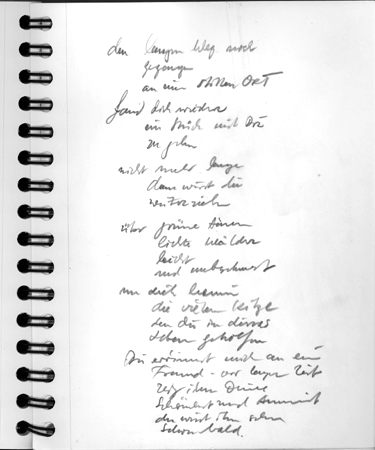 den langen Weg noch
gegangen
an einen stillen ORT
fand dich wieder
ein Stück mit Dir
zu gehn
nicht mehr lange
dann wirst du
über grüne
lichte Wälder
leicht
und unbeschwert
um dich herum
die vielen
den du in dieses
Leben geholfen
Du erinnerst mich an ein
Freund - vor langer Zeit
ihm Deine
Schönheit und Anmut
du wirst ihn sehn
schon bald.